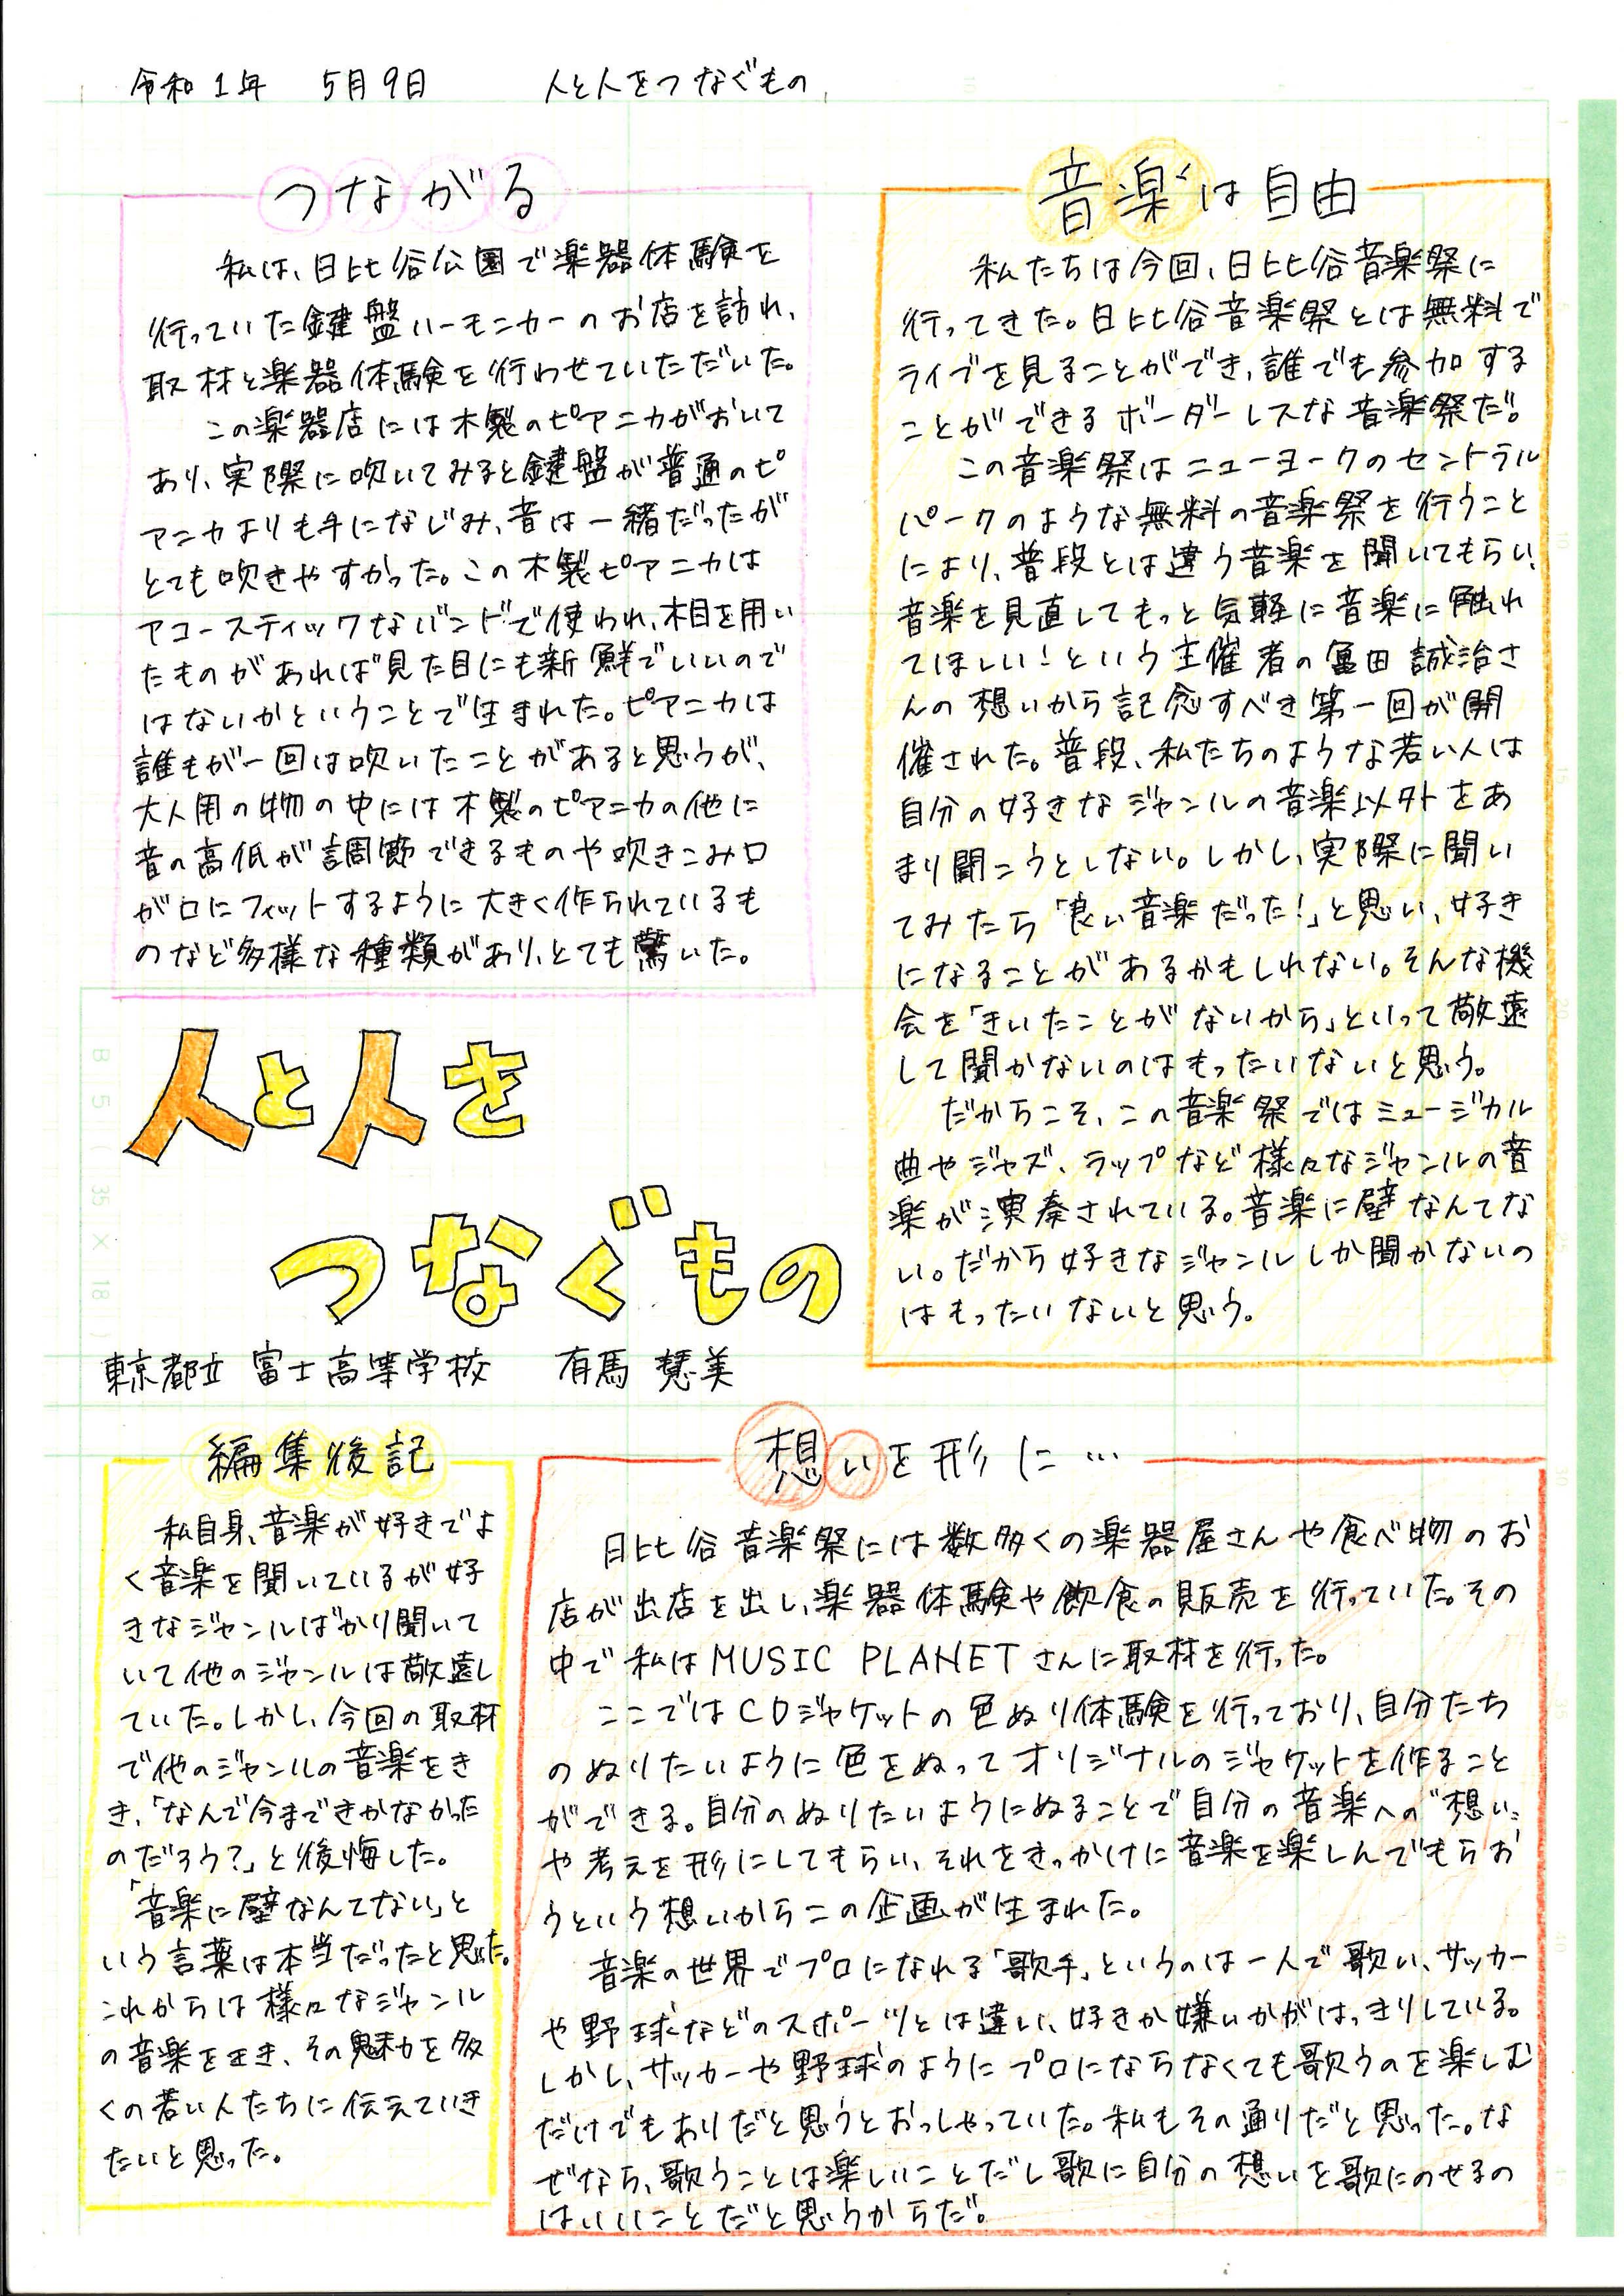 令和1年　5月9日　人と人をつなぐもの
音楽は自由
私たちは今回、日比谷音楽祭に
行ってきた。日比谷音楽祭とは無料で
ライブを見ることができ、誰でも参加する
ことができるボーダーレスな音楽祭だ。
この音楽祭はニューヨークのセントラル
パークのような無料の音楽祭を行うこと
により、普段とは違う音楽を聞いてもらい、
音楽を見直してもっと気軽に音楽に触れ
てほしい！という主催者の冨田誠治さ
んの想いから記念すべき第一回が開
催された。普段、私たちのような若い人は
自分の好きなジャンルの音楽以外をあ
まり聞こうとしない。しかし、実際に聞い
てみたら「良い音楽だった！」と思い、好き
になることがあるかもしれない。そんな機
会を「きいたことがないから」といって敬遠
して聞かないのはもったいないと思う。
だからこそ、この音楽祭ではミュージカル
曲やジャズ、ラップなど様々なジャンルの音
楽が演奏されている。音楽に壁なんてな
い。だから好きなジャンルしか聞かないの
はもったいないと思う。
つながる
私は、日比谷公園で楽器体験を
行っていた鍵盤ハーモニカーのお店を訪れ、
取材と楽器体験を行わせていただいた。
この楽器店には木製のピアニカがおいて
あり、実際に吹いてみると鍵盤が普通のピ
アニカよりも手になじみ、音は一緒だったが
とても吹きやすかった。この木製ピアニカは
アコースティックなバンドで使われ、木目を用い
たものがあれば見た目にも新鮮でいいので
はないかということで生まれた。ピアニカは
誰もが一回は吹いたことがあると思うが、
大人用の物の中には木製のピアニカの他に
音の高低が調節できるものや吹きこみ口
が口にフィットするように大きく作られているも
のなど多様な種類があり、とても驚いた。
人と人を
つなぐもの
東京都立 富士高等学校　有馬 慧美
想いを形に…
日比谷音楽祭には数多くの楽器屋さんや食べ物のお
店が出店を出し、楽器体験や飲食の販売を行っていた。その
中で私はMUSIC PLANETさんに取材を行った。
ここではCDジャケットの色ぬり体験を行っており、自分たち
のぬりたいように色をぬってオリジナルのジャケットを作ること
ができる。自分のぬりたいようにぬることで自分の音楽への"想い"
や考えを形にしてもらい、それをきっかけに音楽を楽しんでもらお
うという想いからこの企画が生まれた。
音楽の世界でプロになれる「歌手」というのは一人で歌い、サッカー
や野球などのスポーツとは違い、好きか嫌いかがはっきりしている。
しかし、サッカーや野球のようにプロにならなくても歌うのを楽しむ
だけでもありだと思うとおっしゃっていた。私もその通りだと思った。な
ぜなら、歌うことは楽しいことだし歌に自分の想いを歌にのせるの
はいいことだと思うからだ。
編集後記
私自身、音楽が好きでよ
く音楽を聞いているが好
きなジャンルばかり聞いて
いて他のジャンルは敬遠し
ていた。しかし、今回の取材
で他のジャンルの音楽をき
き、「なんで今まできかなかった
のだろう？」と後悔した。
「音楽に壁なんてない」と
いう言葉は本当だったと思った。
これからは様々なジャンル
の音楽をきき、その魅力を多
くの若い人たちに伝えていき
たいと思った。
B5(35×18)